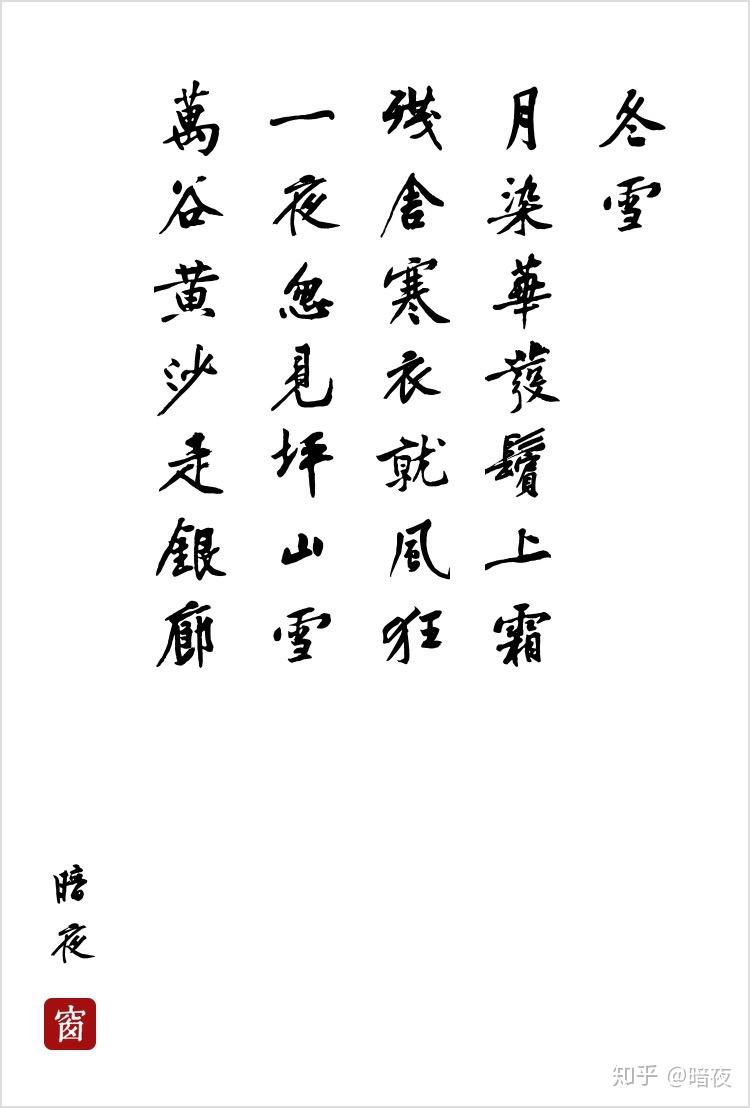 冬雪
月染華發鬢上霜
殘舍寒衣就風狂
一夜忽見坪山雪
萬谷黃沙走銀廊
暗夜
窗
知乎 @暗夜